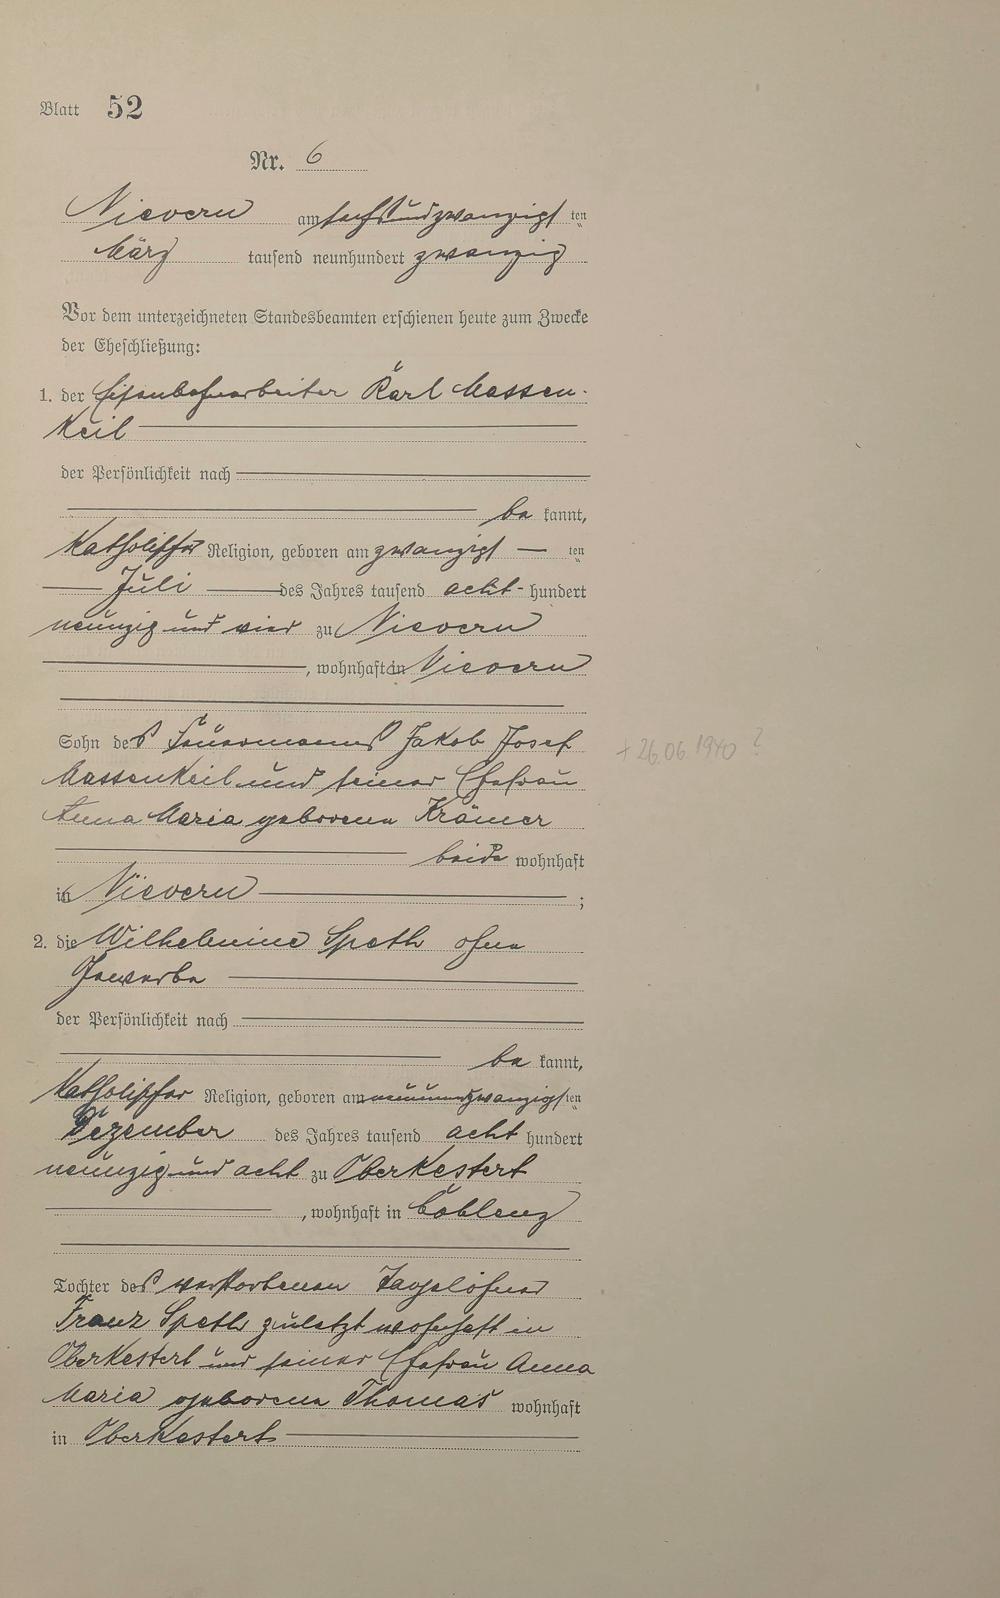 Blatt 52
Nr. 6
Nievern am sechsundzwanzigsten
März tausend neunhundert zwanzig
Vor dem unterzeichneten Standesbeamten erschienen heute zum Zwecke
der Eheschließung:
1. der Eisenbahnarbeiter Karl Massen-
keil
der Persönlichkeit nach
bekannt,
katholischer Religion, geboren am zwanzigsten
Juli des Jahres tausend acht-hundert
neunzig und vier zu Nievern
, wohnhaft in Nievern
Sohn des Feuermanns Jakob Josef
Massenkeil und seiner Ehefrau
Anna Maria geborenen Krämer
beide wohnhaft
in Nievern ;
+26.06.1940 ?
2. die Wilhelmine Speth ohne
Gewerbe
der Persönlichkeit nach
bekannt,
katholischer Religion, geboren am neunundzwanzigsten
Dezember des Jahres tausend acht hundert
neunzig und acht zu Oberkestert
, wohnhaft in Coblenz
Tochter des verstorbenen Tagelöhner
Franz Speth zuletzt wohnhaft in
Oberkestert und seiner Ehefrau Anna
Maria geborene Thomas wohnhaft
in Oberkestert